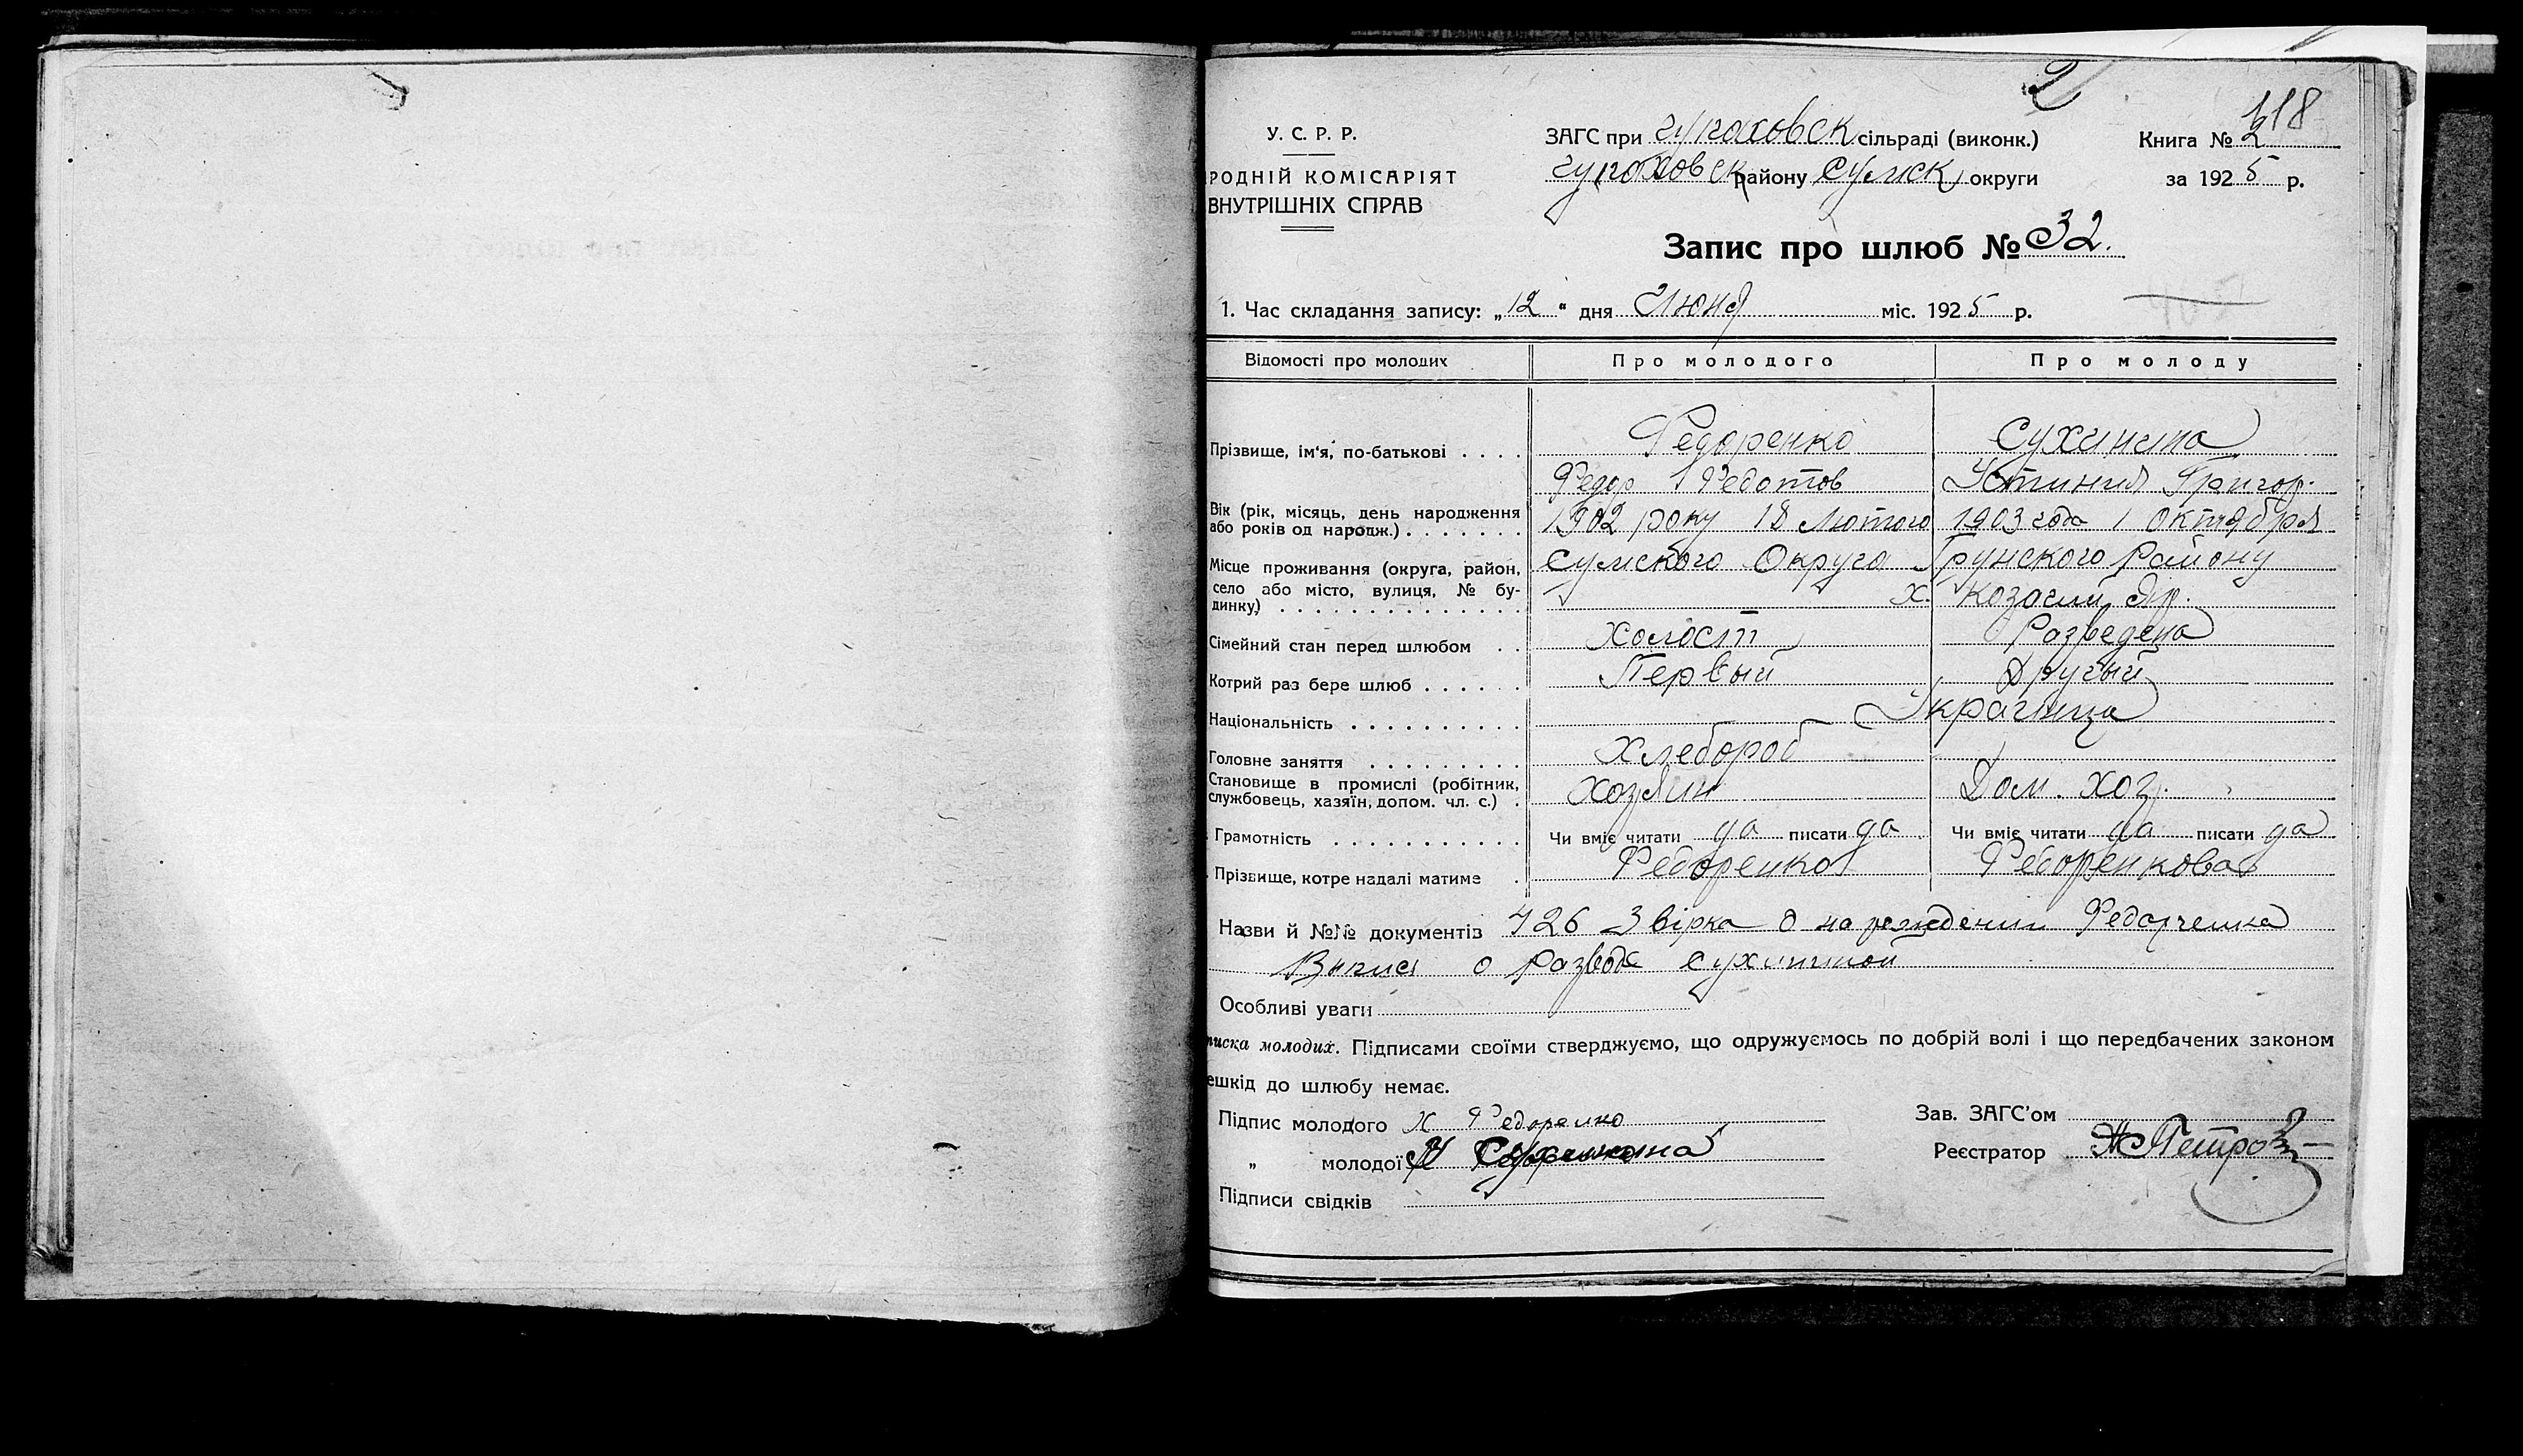 118
У. С. Р. Р.
РОДНІЙ КОМІСАРІЯТ
ВНУТРІШНІХ СПРАВ
ЗАГС при Чупаховск сільраді (виконк.)
Чупаховск району Сумск округи
Книга № 2
за 1925 р.
Запис про шлюб № 32.
1. Час складання запису: „12“ дня Июня міс. 1925 р.
Відомості про молодих Про молодого Про молоду
Прізвище, ім'я, по-батькові . . . . Федоренко Сухинина
Федор Федотов Устиния Григор.
Вік (рік, місяць, день народження
або років од народж.) . . . . . . . 1902 року 18 Лютого 1903 года 1 Октября
Місце проживання (округа, район, Сумского Округа Грунского Району
село або місто, вулиця, № бу-
динку) . . . . . . . . . . . . . . х. Козачий Яр.
Сімейний стан перед шлюбом . . Холост Разведена
Котрий раз бере шлюб . . . . . . Первый Другый
Національність . . . . . . . . . . Украинца
Головне заняття . . . . . . . . . Хлебороб
Становище в промислі (робітник,
службовець, хазяїн, допом. чл. с.) . Хозяин Дом. хоз.
Грамотність . . . . . . . . . . . Чи вміє читати да писати да Чи вміє читати да писати да
Прізвище, котре надалі матиме . Федоренко Федоренкова
Назви й №№ документів 426 Звірка о нарождении Федорченка
Випись о разводе Сухининой
Особливі уваги
писка молодих. Підписами своїми стверджуємо, що одружуємось по добрій волі і що передбачених законом
ешкід до шлюбу немає.
Підпис молодого Х Федоренко
„ молодої Сухинина
Підписи свідків
Зав. ЗАГС'ом
Реєстратор Петров